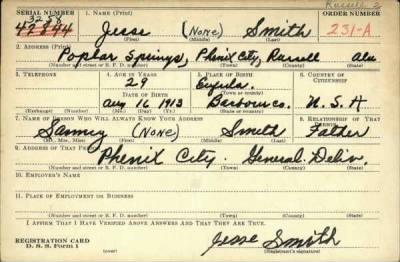 Russell 2
SERIAL NUMBER 1. NAME (Print) ORDER NUMBER
3258
42844 Jesse (None) Smith 231-A
(First) (Middle) (Last)
2. ADDRESS (Print)
Poplar Springs, Phenix City, Russell Ala
(Number and street or R. F. D. number) (Town) (County) (State)
3. TELEPHONE 4. AGE IN YEARS 5. PLACE OF BIRTH 6. COUNTRY OF CITIZENSHIP
29 Eufula
DATE OF BIRTH (Town or county)
Aug 16 1913 Barbour co. U. S. A
(Exchange) (Number) (Mo.) (Day) (Yr.) (State or country)
7. NAME OF PERSON WHO WILL ALWAYS KNOW YOUR ADDRESS 8. RELATIONSHIP OF THAT PERSON
Sammy (None) Smith Father
(Mr., Mrs., Miss) (First) (Middle) (Last)
9. ADDRESS OF THAT PERSON
Phenix City. General. Deliv.
(Number and street or R. F. D. number) (Town) (County) (State)
10. EMPLOYER'S NAME
11. PLACE OF EMPLOYMENT OR BUSINESS
(Number and street or R. F. D. number) (Town) (County) (State)
I AFFIRM THAT I HAVE VERIFIED ABOVE ANSWERS AND THAT THEY ARE TRUE.
REGISTRATION CARD
D. S. S. Form 1 (over) Jesse Smith
(Registrant's signature)